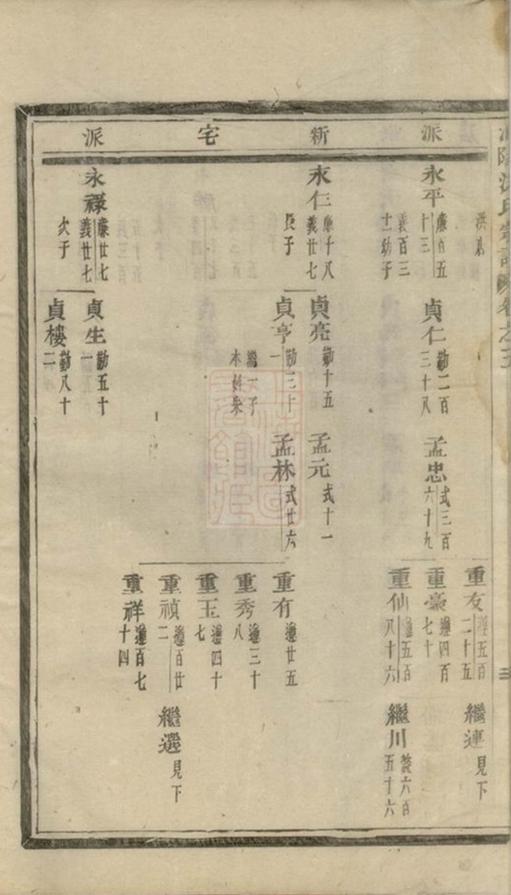 派 新 宅 派
永平 廉百五十三 義百三十一幼子
貞仁 勤二百三十八
孟忠 式三百六十九
重友 遵五百二十五
繼連 見下
重豪 遵四百七十
重仙 遵五百八十六
繼川 贊六百五十六
永仁 廉千八 義廿七 長子
貞亮 勤十五
孟元 式十一
貞亨 勤三十一
繼一子 本姓朱
孟林 式廿六
重有 遵廿五
重秀 遵三十八
重玉 遵四十七
重禎 遵百廿二
繼選 見下
重祥 遵百七十四
永祿 廉廿七 義廿七 次子
貞生 勤五十一
貞樓 勤八十二